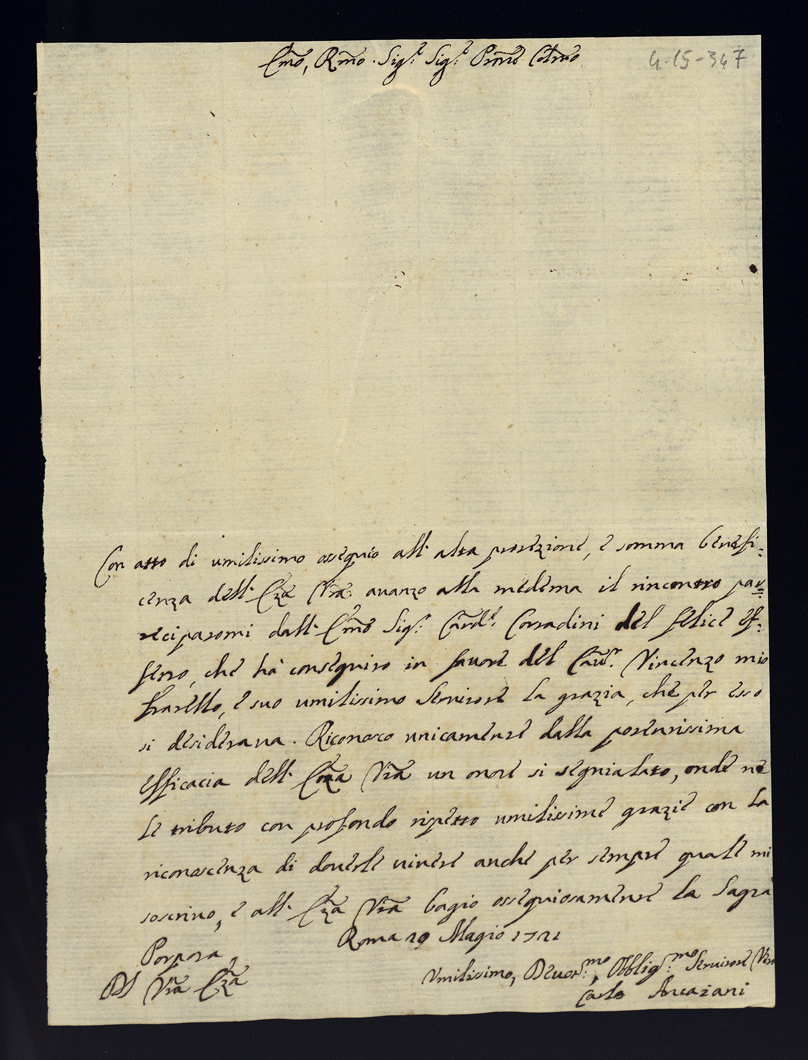 Emo, Rmo. Sigr. Sigr. Prone Colmo
4-15-347
Con atto di umilissimo ossequio all' alta protezione, e somma benefi:
cenza dell' Eza Vra avanzo alla medema il rincontro par:
tecipatomi dall' Emo Sigr. Cardl. Corradini del felice ef:
fetto, che ha conseguito in favore del Cavr. Vincenzo mio
fratello, e suo umilissimo servitore la grazia, che per esso
si desiderava. Riconosco unicamente dalla potentissima
efficacia dell' Eza Vra un onore si segnialato, onde ne
le tributo con profondo rispetto umilissime grazie con la
riconoscenza di doverle vivere anche per sempre quale mi
soscrivo, e all' Eza Vra bagio ossequiosamente la Sagra
Porpora Roma 29 Magio 1721
Di Vra Eza
Umilissimo, Devotmo, Obbligmo Servitore Vero
Carlo